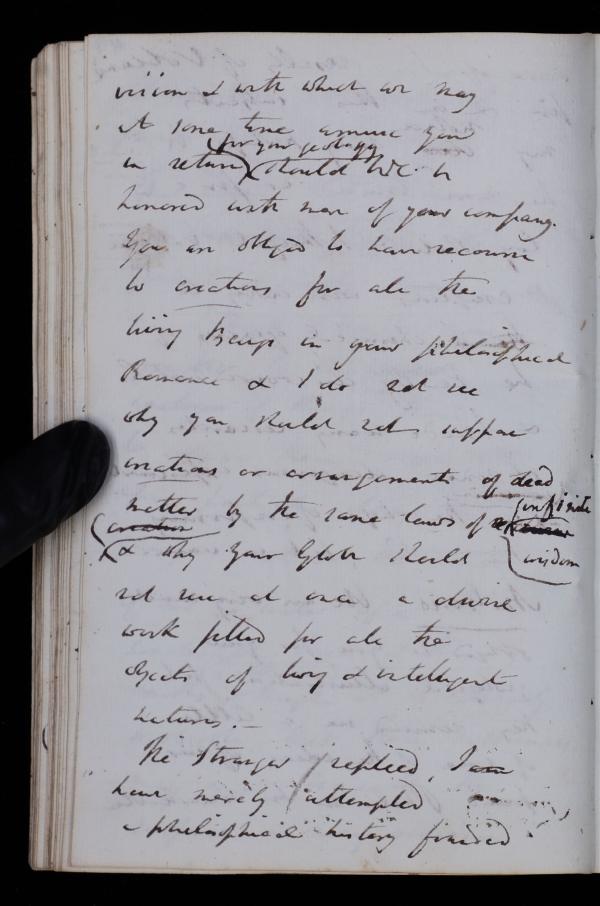 vision & with which we may
at some time amuse you
for your geology
in return should we be
honored with more of your company.
You are obliged to have recourse
to creations for all the
living beings in your philosophical
Romance & I do not see
why you should not suppose
creations or arrangements of dead
matter by the same laws of infinite
creation wisdom
& why your Globe should
not rise at once a divine
work fitted for all the
objects of living & intelligent
natures. –
The Stranger replied, I am
have merely attempted
a philosophical history founded